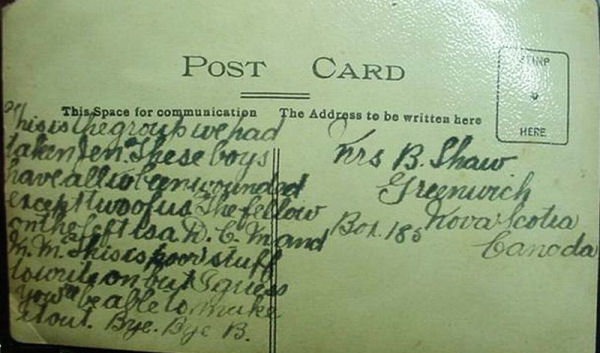 POST CARD
This Space for communication
The Address to be written here
STAMP
HERE
This is the group we had
taken in. These boys
have all been wounded
except two of us. The fellow
on the left is a D.C.M and
M.M. This is poor stuff
to write on but I guess
you'll be able to make
it out. Bye. Bye B.
Mrs B. Shaw
Greenwich
Nova Scotia
Box 185
Canada